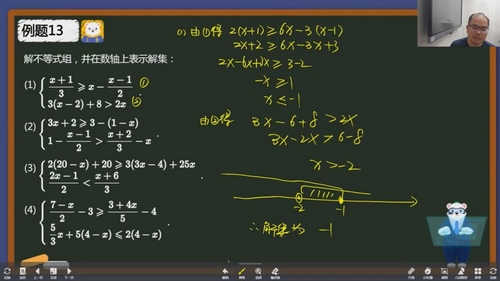 例题13
解不等式组，并在数轴上表示解集：
(1) { (x+1)/3 ⩾ x − (x−1)/2 ①
3(x−2)+8>2x ②
(2) { 3x+2⩾3−(1−x)
1 − (x−1)/2 > (x+2)/3 − x
(3) { 2(20−x)+20⩾3(3x−4)+25x
(2x−1)/2 < (x+6)/3
(4) { (7−x)/2 − 3 ⩾ (3+4x)/5 − 4
(5/3)x+5(4−x)⩽2(4−x)
(1) 由①得 2(x+1)≥6x−3(x−1)
2x+2≥6x−3x+3
2x−6x+3x≥3−2
−x≥1
x≤−1
由②得 3x−6+8>2x
3x−2x>6−8
x>−2
−2 −1
∴解集为 −1